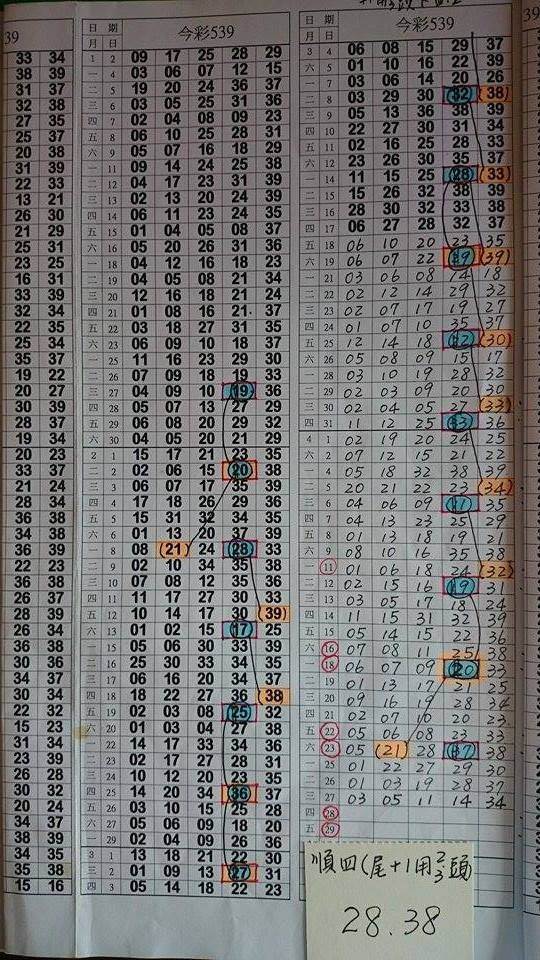 39
33 34
38 39
31 37
32 38
27 35
25 37
20 38
31 39
22 33
13 21
26 30
21 29
25 31
23 29
16 31
33 39
32 34
22 35
25 34
35 37
19 22
20 27
30 39
28 37
19 34
20 23
33 37
21 24
28 34
36 38
34 38
36 39
22 23
36 38
26 38
28 39
26 34
36 38
30 36
34 37
30 34
22 32
15 23
31 34
23 39
26 28
30 32
20 24
34 37
38 39
34 35
35 38
15 16
日 期 今彩539
月 日
1 2 09 17 25 28 29
一 4 03 06 07 12 15
二 5 19 20 24 36 37
三 6 03 05 25 31 36
四 7 02 04 08 09 23
五 8 06 10 25 28 31
六 9 05 07 16 18 29
一 11 09 14 24 25 38
二 12 04 17 23 31 39
三 13 02 13 20 24 39
四 14 06 11 23 24 35
五 15 01 04 05 08 37
六 16 05 20 26 31 36
一 18 04 12 16 18 23
二 19 04 05 08 21 34
三 20 12 16 18 21 24
四 21 01 08 16 21 37
五 22 03 18 27 31 35
六 23 06 09 10 18 37
一 25 11 16 23 29 30
二 26 07 09 18 19 33
三 27 04 09 10 19 36
四 28 05 07 13 27 29
五 29 06 08 20 29 32
六 30 04 05 20 21 29
2 1 15 17 21 23 35
二 2 02 06 15 20 38
三 3 06 07 17 35 39
四 4 17 18 26 29 36
五 5 15 31 32 34 35
六 6 01 13 20 37 39
一 8 08 (21) 24 28 33
二 9 02 10 34 35 38
三 10 07 08 12 35 36
四 11 11 17 27 30 33
五 12 10 14 17 30 (39)
六 13 01 02 15 17 25
一 15 05 06 30 33 39
二 16 25 30 33 34 35
三 17 06 16 20 34 37
四 18 18 22 27 36 (38)
五 19 02 03 08 25 32
六 20 01 03 04 27 38
一 22 14 17 33 34 36
二 23 02 17 27 28 31
三 24 10 12 20 23 35
四 25 14 20 34 36 37
五 26 03 10 15 25 28
六 27 05 06 09 18 20
一 29 02 04 09 26 36
3 1 13 18 21 22 30
三 2 01 09 13 27 31
四 3 05 14 18 22 23
日 期 今彩539
月 日
3 4 06 08 15 29 37
六 5 01 10 16 22 39
一 7 03 06 14 20 26
二 8 03 29 30 32 (38)
三 9 05 13 36 38 39
四 10 22 27 30 31 34
五 11 02 16 25 28 33
六 12 23 26 30 35 37
一 14 11 15 25 28 (33)
二 15 15 26 32 38 39
三 16 28 30 32 33 38
四 17 06 27 28 32 37
五 18 06 10 20 23 35
六 19 06 07 22 29 (39)
一 21 03 06 08 14 18
二 22 02 12 14 29 32
三 23 02 07 17 19 27
四 24 01 07 10 35 37
五 25 12 14 18 22 (30)
六 26 05 08 09 15 17
一 28 03 10 19 28 32
二 29 02 03 09 20 30
三 30 02 04 05 27 (33)
四 31 11 12 25 33 36
4 1 02 19 20 24 25
六 2 07 12 15 21 22
一 4 05 18 32 38 39
二 5 20 21 22 23 (34)
三 6 04 06 09 11 35
四 7 04 13 23 25 29
五 8 01 13 18 19 21
六 9 08 10 16 35 38
一 11 01 06 18 24 (32)
二 12 02 15 16 19 31
三 13 03 05 17 18 24
四 14 11 15 31 32 39
五 15 05 14 15 22 36
六 16 07 08 11 25 38
一 18 06 07 09 20 33
二 19 01 13 17 21 25
三 20 09 16 19 28 34
四 21 02 07 10 20 23
五 22 05 06 08 23 33
六 23 05 (21) 28 37 38
一 25 01 22 27 29 30
二 26 01 03 19 28 37
三 27 03 05 11 14 34
四 28
五 29
順四(尾+1用2.3頭)
28.38